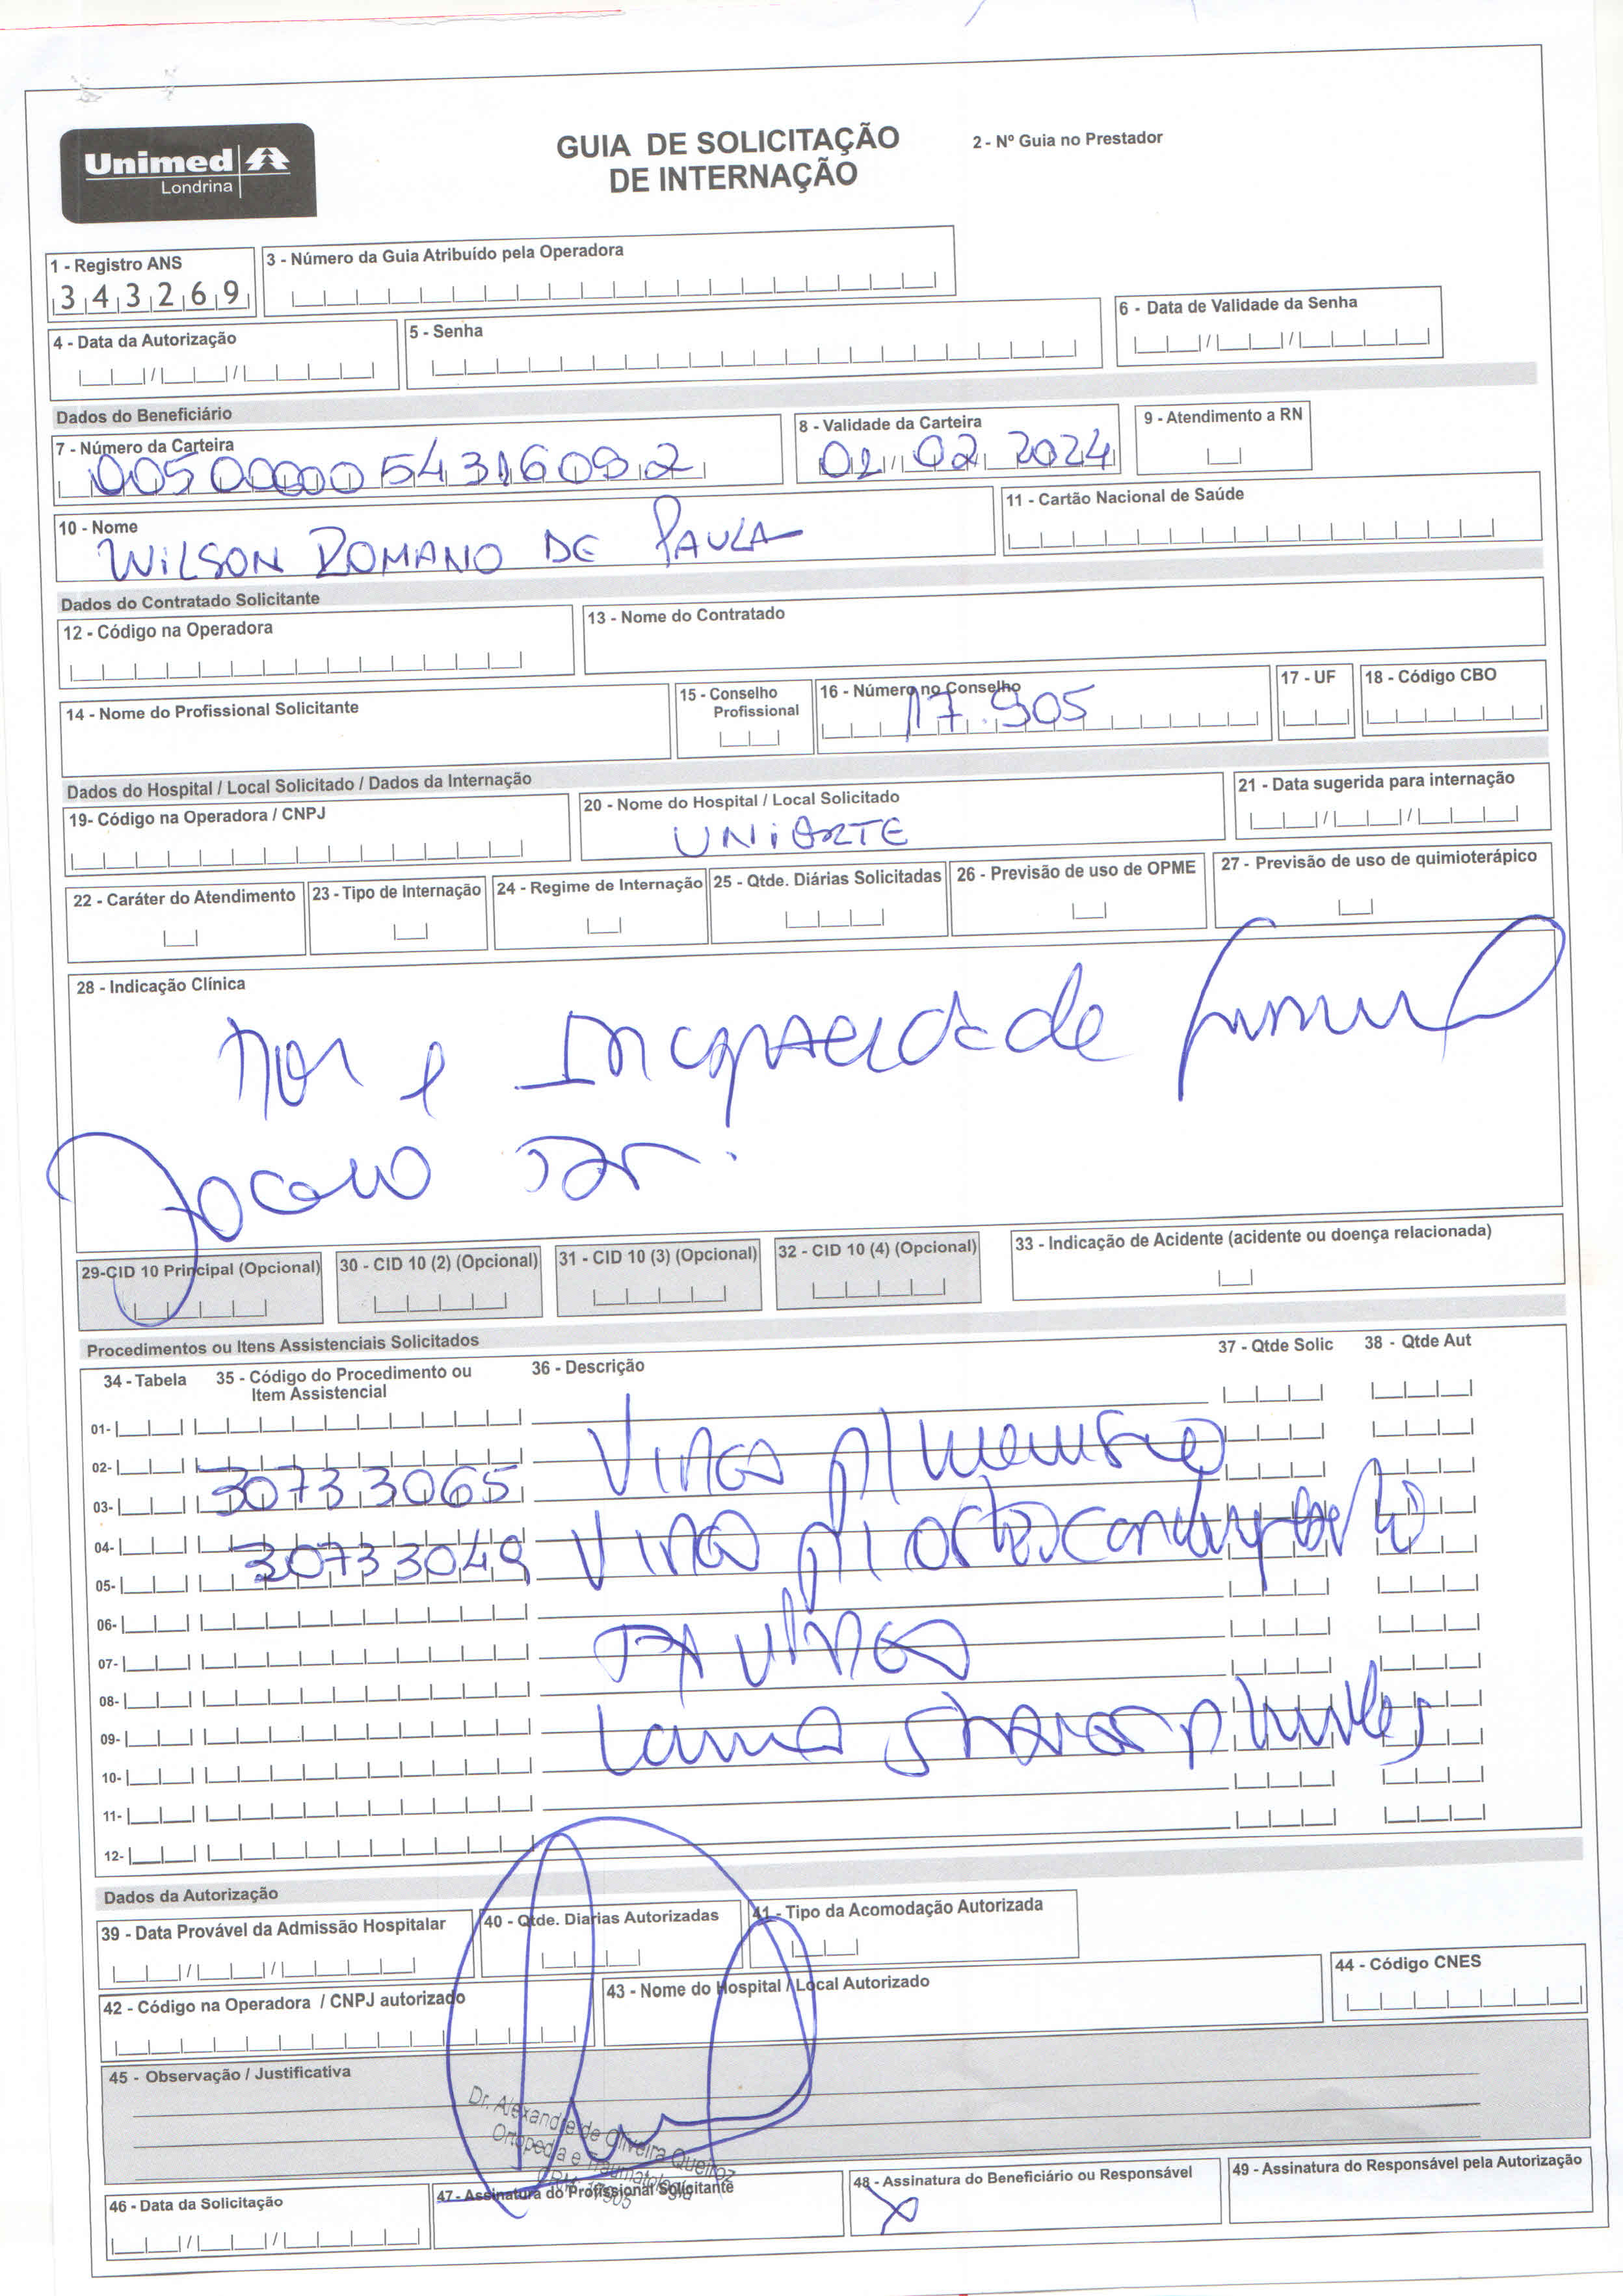 Unimed
Londrina
GUIA DE SOLICITAÇÃO
DE INTERNAÇÃO
2 - Nº Guia no Prestador
1 - Registro ANS
343269
3 - Número da Guia Atribuído pela Operadora
4 - Data da Autorização
5 - Senha
6 - Data de Validade da Senha
Dados do Beneficiário
7 - Número da Carteira
0050000054316092
8 - Validade da Carteira
02 02 2024
9 - Atendimento a RN
10 - Nome
WILSON ROMANO DE PAULA
11 - Cartão Nacional de Saúde
Dados do Contratado Solicitante
12 - Código na Operadora
13 - Nome do Contratado
14 - Nome do Profissional Solicitante
15 - Conselho
Profissional
16 - Número no Conselho
17.905
17 - UF
18 - Código CBO
Dados do Hospital / Local Solicitado / Dados da Internação
19- Código na Operadora / CNPJ
20 - Nome do Hospital / Local Solicitado
UNIORTE
21 - Data sugerida para internação
22 - Caráter do Atendimento
23 - Tipo de Internação
24 - Regime de Internação
25 - Qtde. Diárias Solicitadas
26 - Previsão de uso de OPME
27 - Previsão de uso de quimioterápico
28 - Indicação Clínica
e Incapacidade
29-CID 10 Principal (Opcional)
30 - CID 10 (2) (Opcional)
31 - CID 10 (3) (Opcional)
32 - CID 10 (4) (Opcional)
33 - Indicação de Acidente (acidente ou doença relacionada)
Procedimentos ou Itens Assistenciais Solicitados
34 - Tabela
35 - Código do Procedimento ou
Item Assistencial
36 - Descrição
37 - Qtde Solic
38 - Qtde Aut
01-
02-
03-
30733065
04-
05-
30733049
06-
07-
08-
09-
10-
11-
12-
Dados da Autorização
39 - Data Provável da Admissão Hospitalar
40 - Qtde. Diarias Autorizadas
41 - Tipo da Acomodação Autorizada
42 - Código na Operadora / CNPJ autorizado
43 - Nome do Hospital / Local Autorizado
44 - Código CNES
45 - Observação / Justificativa
Dr. Alexandre de Oliveira Queiroz
Ortopedia e Traumatologia
CRM 17905
46 - Data da Solicitação
47 - Assinatura do Profissional Solicitante
48 - Assinatura do Beneficiário ou Responsável
X
49 - Assinatura do Responsável pela Autorização